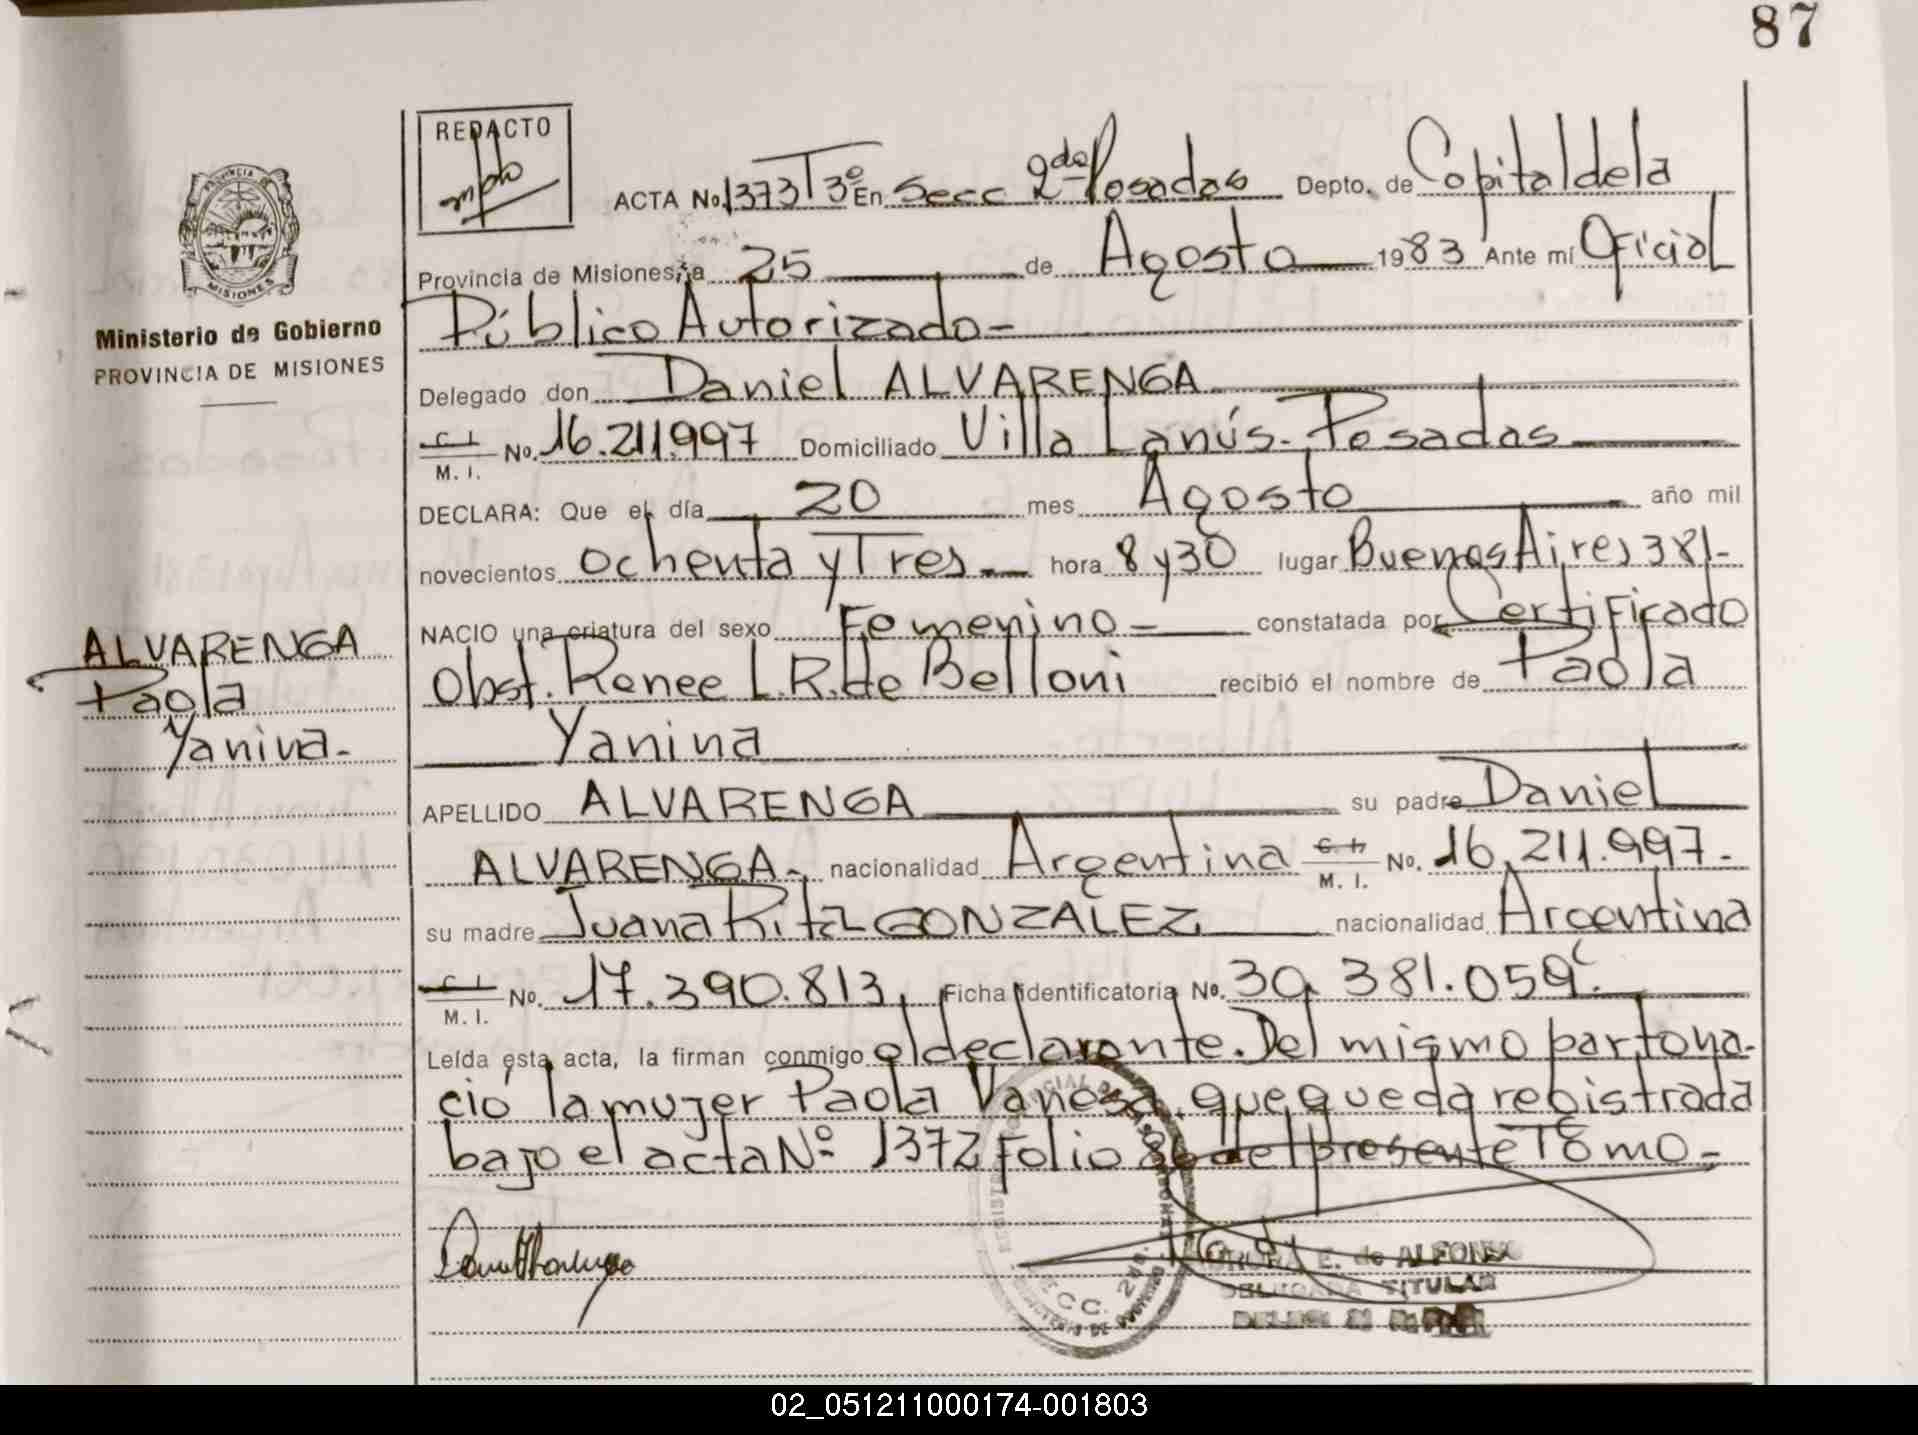 87
REDACTO
ACTA No. 1373 T 3º En Secc 2da Posadas Depto. de Capital de la
Provincia de Misiones, a 25 de Agosto 1983 Ante mí Oficial
Público Autorizado-
Ministerio de Gobierno
PROVINCIA DE MISIONES
MISIONES
Delegado don Daniel ALVARENGA
C. I.
M. I. No. 16.211.997 Domiciliado Villa Lanús - Posadas
DECLARA: Que el día 20 mes Agosto año mil
novecientos ochenta y Tres hora 8 y 30 lugar Buenos Aires 381-
NACIO una criatura del sexo Femenino - constatada por Certificado
ALVARENGA
Paola
Yanina-
Obst. Renee L.R. de Belloni recibió el nombre de Paola
Yanina
APELLIDO ALVARENGA su padre Daniel
ALVARENGA- nacionalidad Argentina C. I.
M. I. No. 16.211.997.-
su madre Juana Rita GONZALEZ nacionalidad Argentina
C. I.
M. I. No. 17.390.813, Ficha identificatoria No. 30.381.059
Leída ésta acta, la firman conmigo el declarante. Del mismo parto na-
ció la mujer Paola Vanesa, que queda registrada
bajo el acta Nº 1372 Folio 86 del presente Tomo-
E. de ALFONSO
DELEGADA TITULAR
SECC. 2da.
02_051211000174-001803